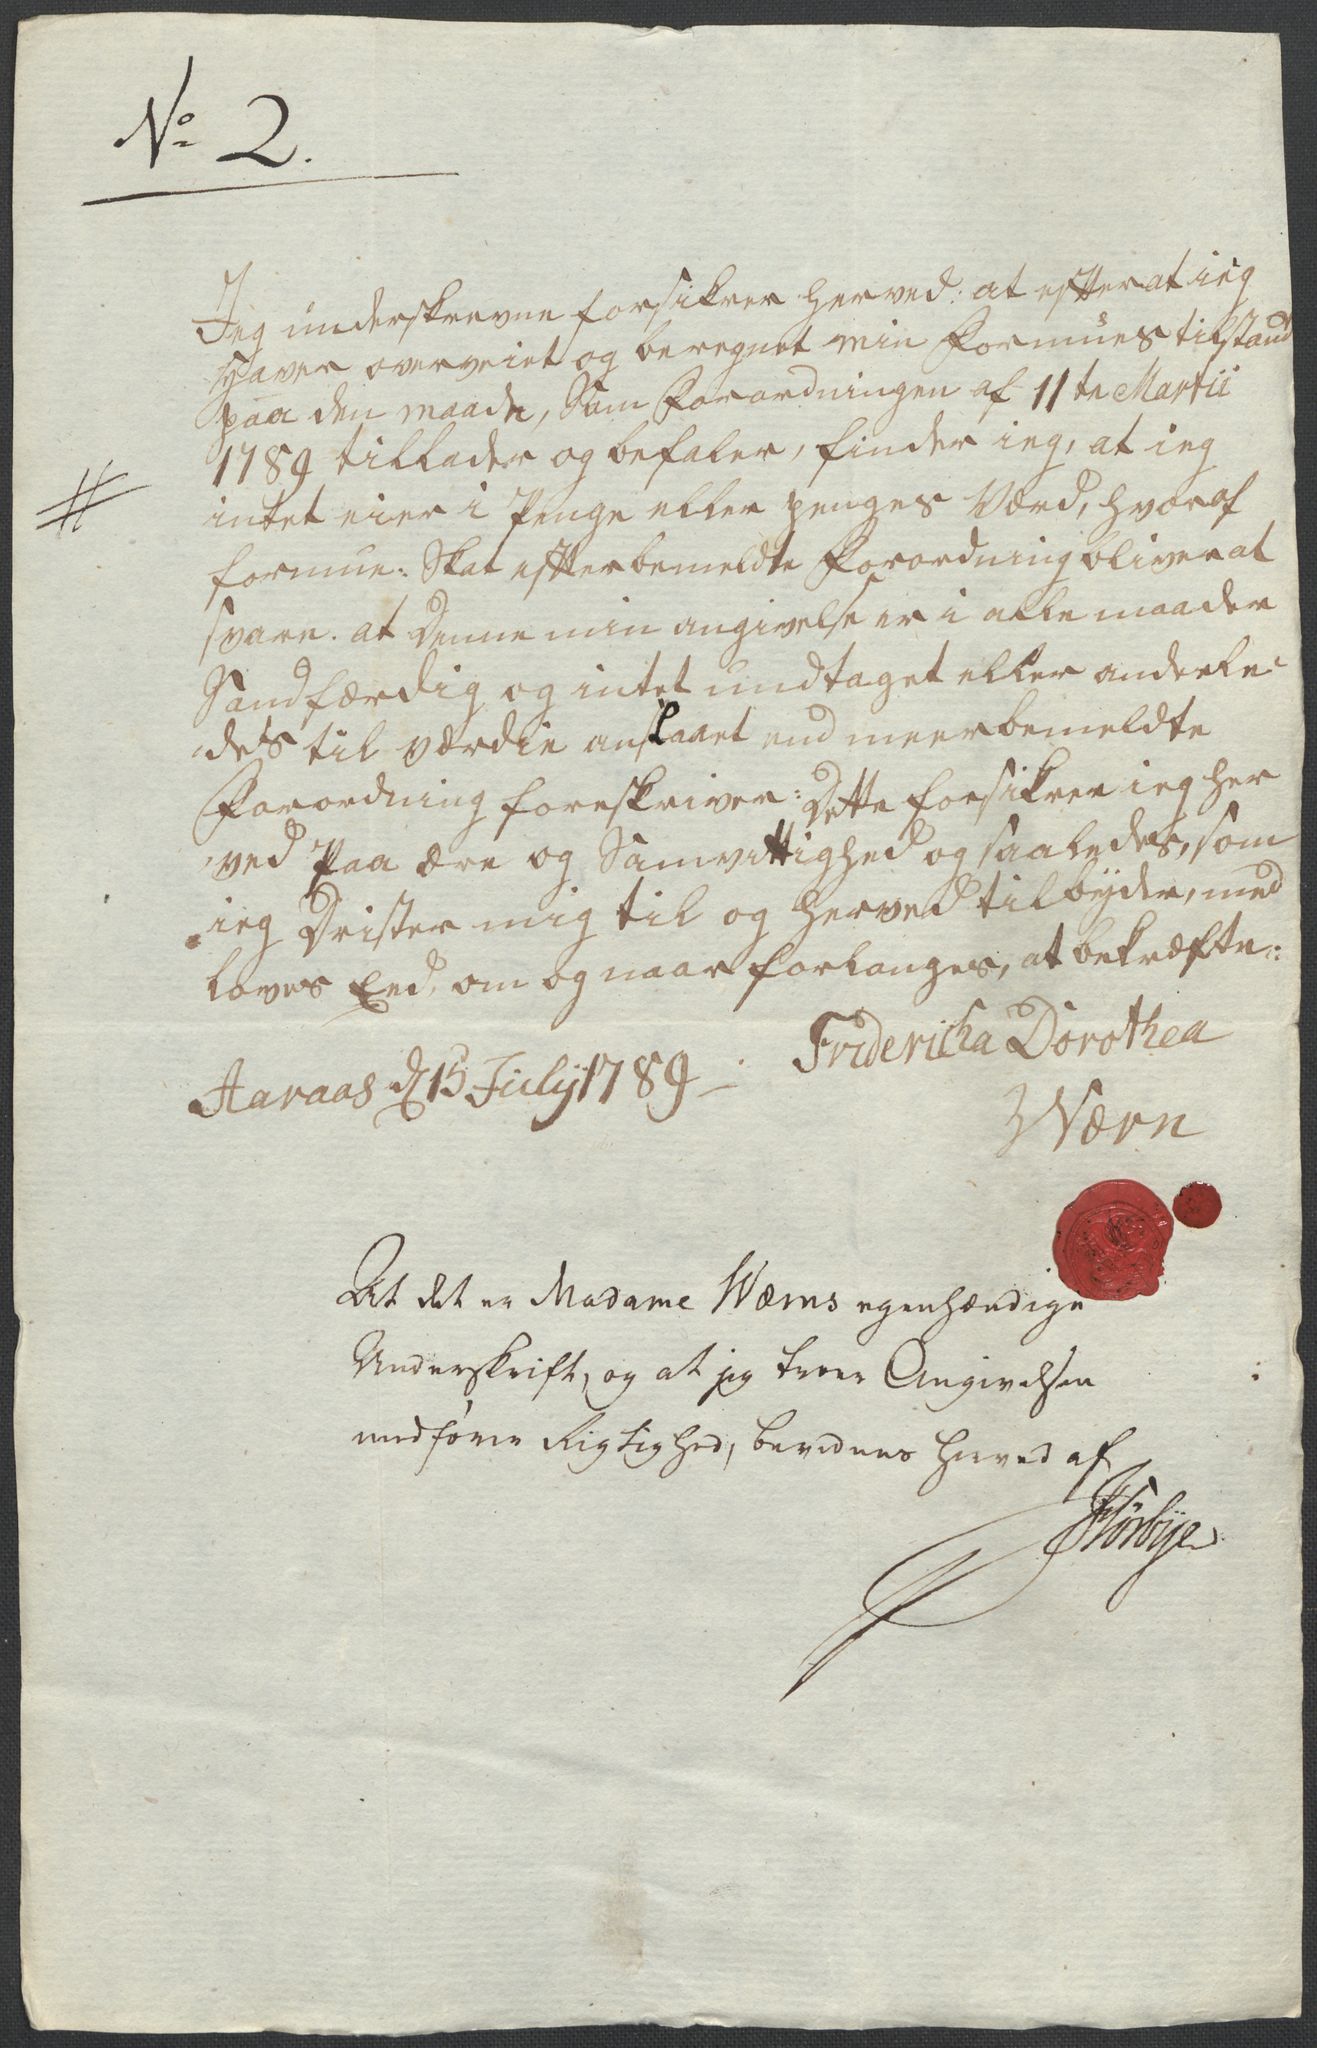 No 2.
Jeg underskrevne forsikrer herved: at efterat ieg
haver overveiet og beregnet min Formues tilstand
paa den maade, Som Forordningen af 11te Martii
1789 tillader og befaler, finder ieg, at ieg
#
intet eier i Penge eller penges Værd, hvoraf
formue: Skat efter bemeldte Forordning bliver at
svare. at Denne min angivelse er i alle maader
Sandfærdig og intet undtaget eller anderle-
des til værdie anslaaet end meerbemeldte
Forordning foreskriver: Dette forsikrer ieg her
ved Paa ære og Samvittighed og saaledes, som
ieg Drister mig til og herved tilbyder, med
loves Eed, om og naar forlanges, at bekræfte:
Aaraas d 15 July 1789
Fridericha Dorothea
Wærn
At det er Madame Wærns egenhændige
Underskrift, og at jeg troer Angivelsen
medfører Rigtighed, bevidnes herved af